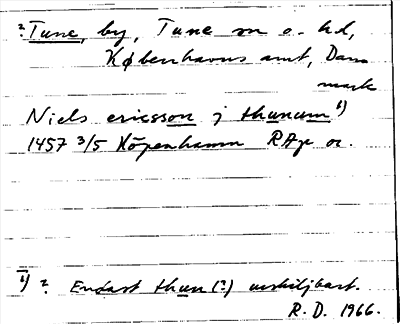 ? Tune, by, Tune sn o. hd,
Københavns amt, Dan
mark
Niels ericsson j thunum ¹)
1457 3/5 Köpenhamn RAp or.
¹) ? Endast thun (?) urskiljbart.
R. D. 1966.